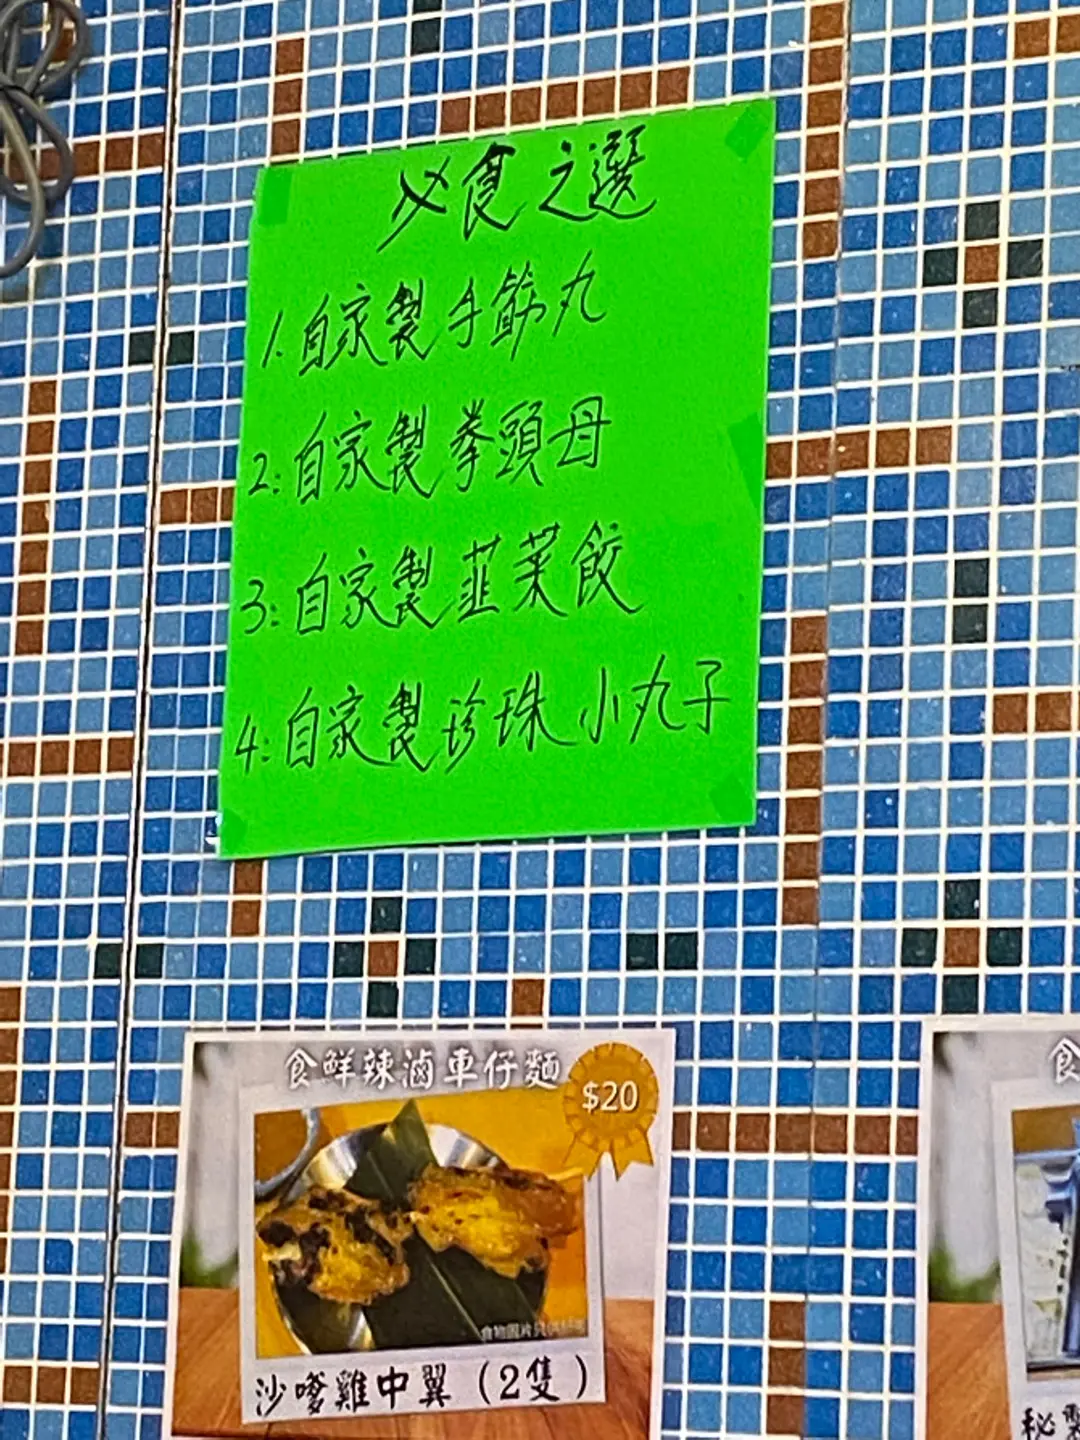 必食之選
1. 自家製手筋丸
2: 自家製拳頭母
3: 自家製韮菜餃
4: 自家製珍珠小丸子
食鮮辣滷車仔麵
$20
沙嗲雞中翼 (2隻)
食
秘製